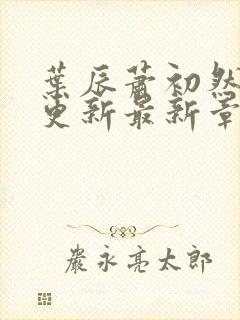 葉辰蕭初然
更新最新章
嚴永亮太郎